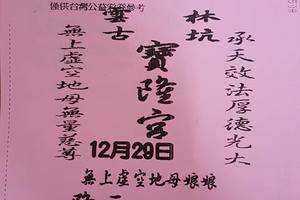 僅供台灣公益彩券參考
林坑
雲古
承天效法厚德光大
寶隆宮
無上虛空地母無量慈尊
12月29日
無上虛空地母娘娘